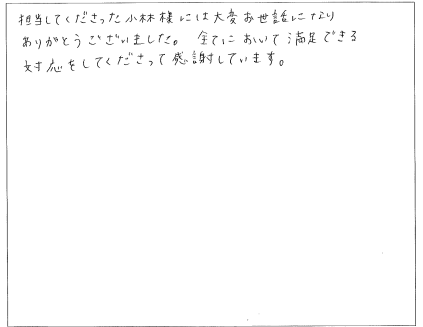 担当してくださった小林様には大変お世話になり
ありがとうございました。全てにおいて満足できる
対応をしてくださって感謝しています。